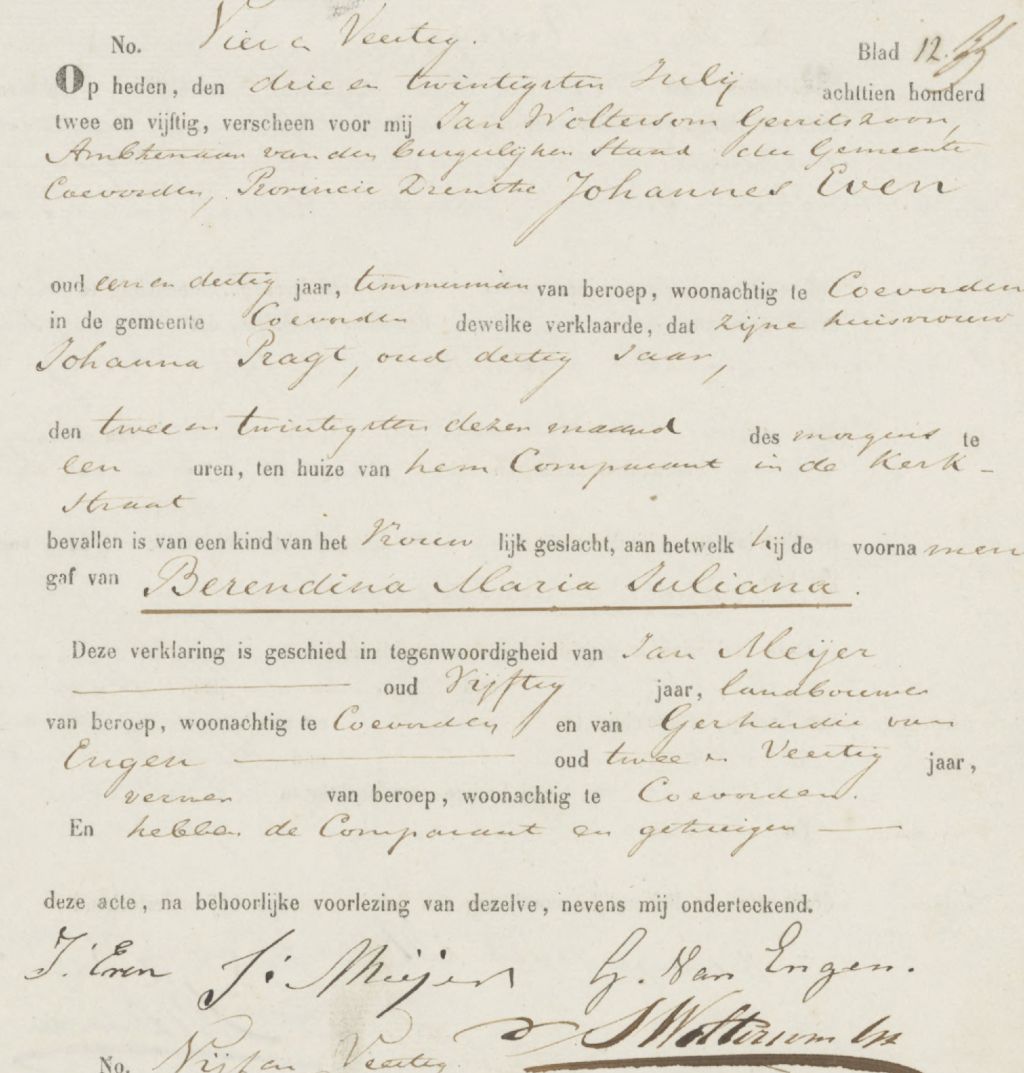 No. Vier en Veertig. Blad 12.
Op heden, den drie en twintigsten Julij achttien honderd
twee en vijftig, verscheen voor mij Jan Woltersom Gerritszoon,
Ambtenaar van den burgerlijken Stand der Gemeente
Coevorden, Provincie Drenthe Johannes Even
oud een en dertig jaar, timmerman van beroep, woonachtig te Coevorden
in de gemeente Coevorden dewelke verklaarde, dat zijne huisvrouw
Johanna Pragt, oud dertig Jaar,
den twee en twintigsten dezer maand des morgens te
een uren, ten huize van hem Comparant in de Kerk-
straat
bevallen is van een kind van het Vrouw lijk geslacht, aan hetwelk hij de voorna men
gaf van Berendina Maria Juliana.
Deze verklaring is geschied in tegenwoordigheid van Jan Meijer
oud Vijftig jaar, landbouwer
van beroep, woonachtig te Coevorden en van Gerhardie van
Engen oud twee en Veertig jaar,
verwer van beroep, woonachtig te Coevorden.
En hebben de Comparant en getuigen
deze acte, na behoorlijke voorlezing van dezelve, nevens mij onderteekend.
J. Even J. Meijer G. Van Engen.
J Woltersom Gz
No. Vijf en Veertig.